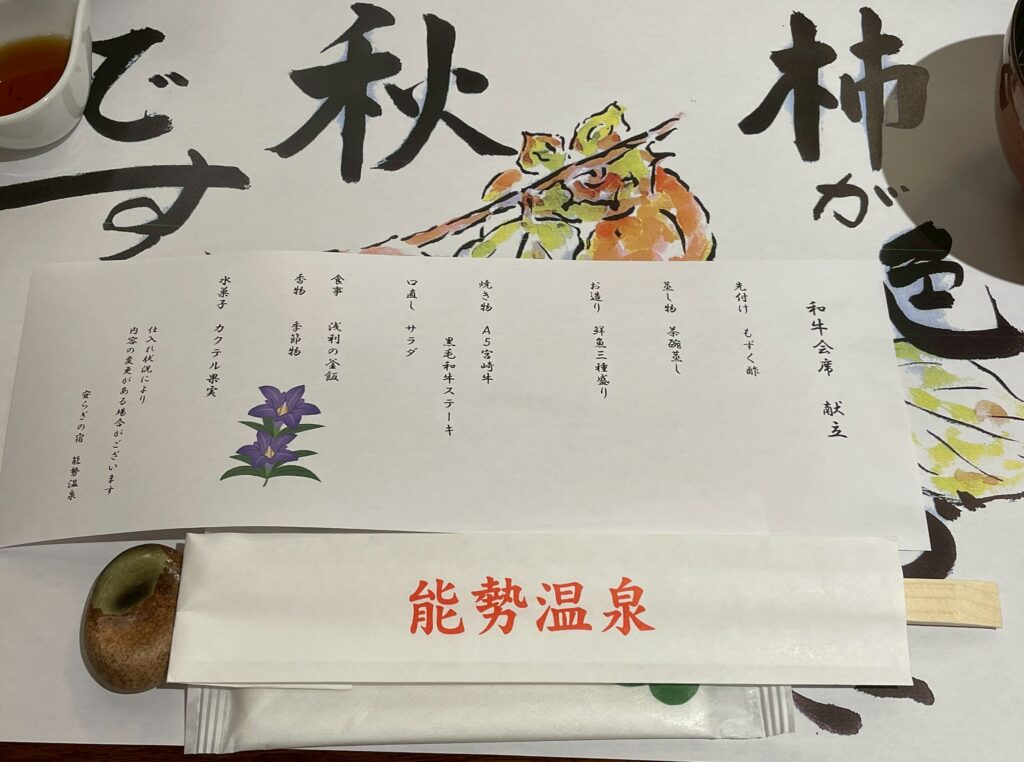 柿が色
秋
です
和牛会席 献立
先付け もずく酢
蒸し物 茶碗蒸し
お造り 鮮魚三種盛り
焼き物 A5宮崎牛
黒毛和牛ステーキ
口直し サラダ
食事 浅利の釜飯
香物 季節物
水菓子 カクテル果実
仕入れ状況により
内容の変更がある場合がございます
安らぎの宿 能勢温泉
能勢温泉